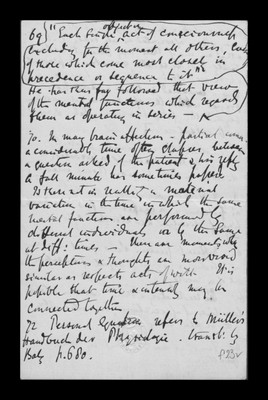 69} "Each single act of consciousness
excluding for the moment all others, even
of those which come most closely in
precedence or sequence to it"
He has thus far followed that view
of the mental functions which regards
them as operating in series —
70. In many brain affections – partial
a considerable time often elapses between
a question asked of the patient & his reply
A full minute has sometimes passed
Is there not in reality a material
variation in the time in which the same
mental functions are performed by
different individuals or by the same
at diff: times — There are moments when
the perceptions & thoughts are
similar as respects acts of will. It is
possible that time & intensity may be
connected together
72 Personal Equation refers to Müller's
Handbuch der Physiologie. transl: by
Baly p. 680.